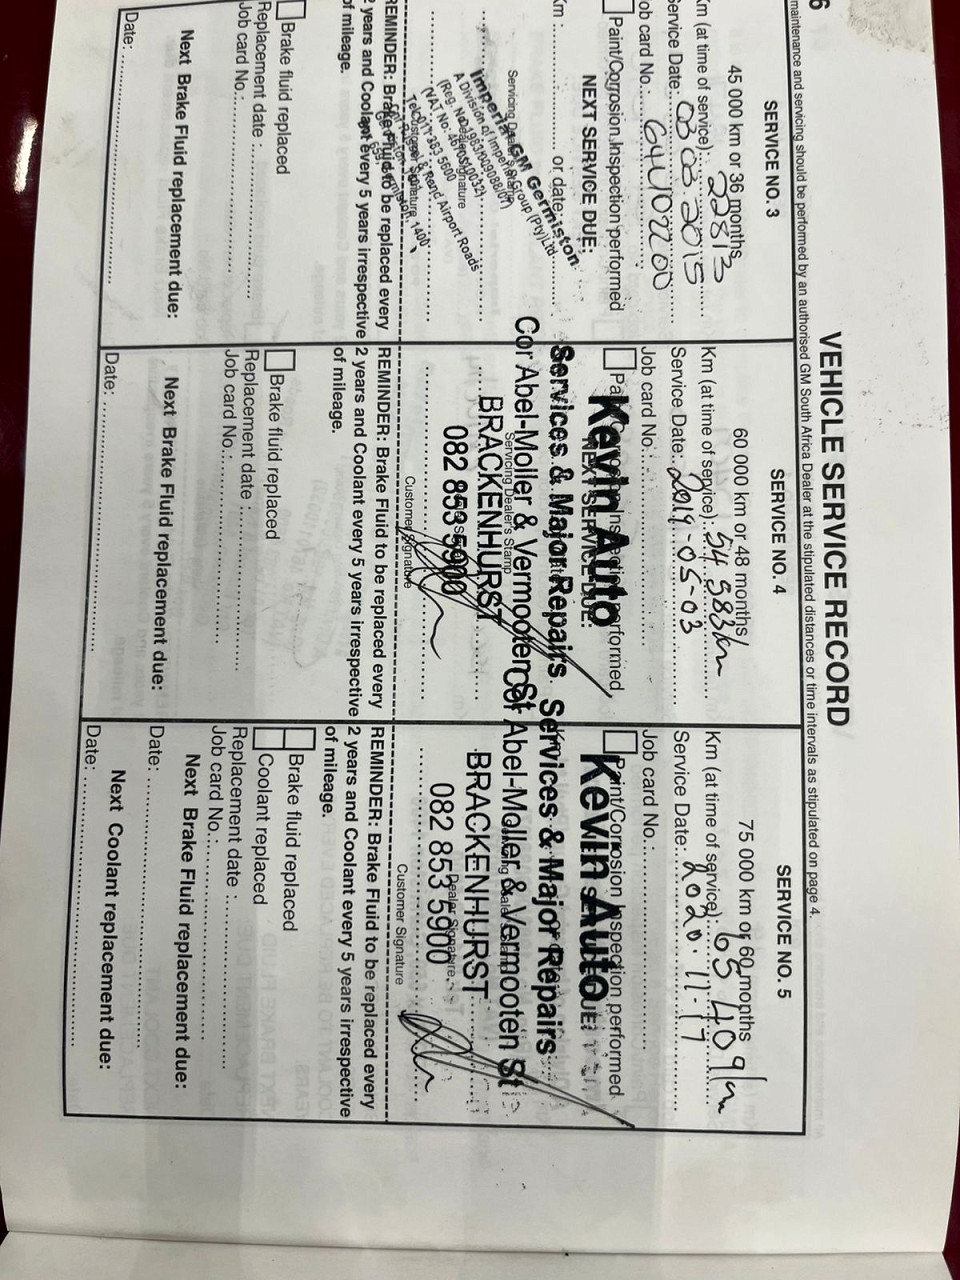 6
VEHICLE SERVICE RECORD
maintenance and servicing should be performed by an authorised GM South Africa Dealer at the stipulated distances or time intervals as stipulated on page 4.
SERVICE NO. 3
45 000 km or 36 months
Km (at time of service): 22813
Service Date: 03.08.2015
Job card No.:
Paint/Corrosion Inspection performed
NEXT SERVICE DUE:
Km : or date:
Servicing Dealer's Stamp
Imperial GM Germiston
A Division of Imperial Group (Pty) Ltd
(Reg. No. 1983/009088/07)
(VAT No.
Tel: 011 383 5600
Rand Airport Roads
Germiston, 1400
Dealer Signature
Customer Signature
REMINDER: Brake Fluid to be replaced every
2 years and Coolant every 5 years irrespective
of mileage.
Brake fluid replaced
Replacement date :
Job card No.:
Next Brake Fluid replacement due:
Date:
SERVICE NO. 4
60 000 km or 48 months/
Km (at time of service): 54 983km
Service Date: 2019-05-03
Job card No.:
Paint/Corrosion Inspection performed
NEXT SERVICE DUE:
Kevin Auto
Services & Major Repairs
Cor Abel-Moller & Vermooten St
BRACKENHURST
082 853 5900
Servicing Dealer's Stamp
Customer Signature
REMINDER: Brake Fluid to be replaced every
2 years and Coolant every 5 years irrespective
of mileage.
Brake fluid replaced
Replacement date :
Job card No.:
Next Brake Fluid replacement due:
Date:
SERVICE NO. 5
75 000 km or 60 months
Km (at time of service): 65 409km
Service Date: 2020.11.17
Job card No.:
Paint/Corrosion Inspection performed
Kevin Auto
Services & Major Repairs
Cor Abel-Moller & Vermooten St
BRACKENHURST
082 853 5900
Dealer Signature
Customer Signature
REMINDER: Brake Fluid to be replaced every
2 years and Coolant every 5 years irrespective
of mileage.
Brake fluid replaced
Coolant replaced
Replacement date :
Job card No.:
Next Brake Fluid replacement due:
Date:
Next Coolant replacement due:
Date: